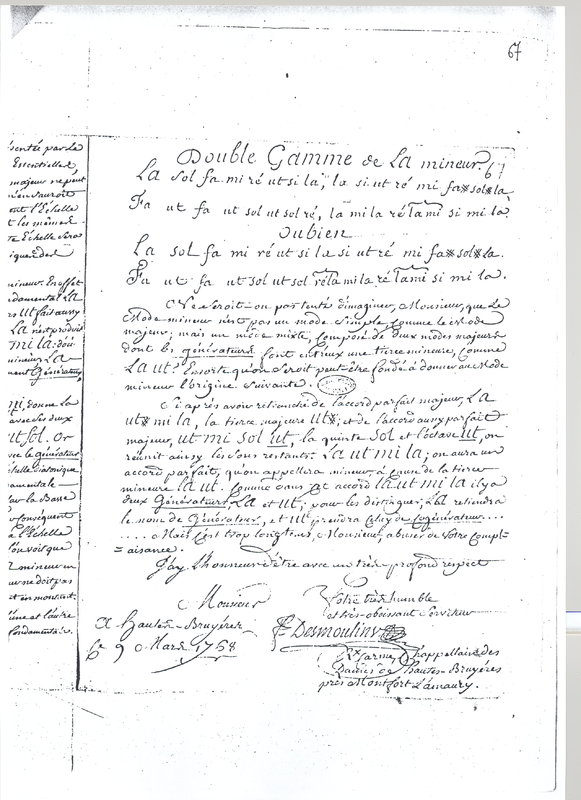 67
sentée par la
Essentielle
majeur ne peut
n'en sauroit
ont l'Échelle
t les mêmes
te Échelle sera
iquer des
mineur. En effet
damental La
rs ut fait aussy
La n'est produit
mi la: d'où
mineur La
nent Générateur,
mi, donne la
avec ses deux
ut sol. Or
ve le générateur
chelle diatonique
amentale
par la Basse
conséquent
à l'Échelle
l'on voit que
mineur en
ne doit pas
et en montant.
une et l'autre
fondamentale.
Double Gamme de La mineur. 67
La sol fa mi ré ut si la, la si ut ré mi fa※ sol※ la
Fa ut fa ut sol ut sol ré, la mi la ré la mi si mi la
Ou bien
La sol fa mi ré ut si la si ut ré mi fa※ sol※ la.
Fa ut fa ut sol ut sol ré la mi la ré la mi si mi la.
Ne seroit-on pas tenté d'imaginer, Monsieur, que le
Mode mineur n'est pas un mode simple, comme le Mode
majeur; mais un mode mixte, composé de deux modes majeurs
dont les générateurs sont entr'eux une tierce mineure, comme
La ut? Ensorte qu'on seroit peut-être fondé à donner au Mode
mineur l'origine suivante.
Si après avoir retranché de l'accord parfait majeur, La
ut※ mi la, la tierce majeure ut※; et de l'accord aussy parfait
majeur, ut mi sol ut, la quinte sol et l'octave ut, on
réunit ainsy les sons restants. La ut mi la; on aura un
accord parfait, qu'on appellera mineur, à cause de la tierce
mineure la ut. Comme dans cet accord la ut mi la il y a
deux Générateurs, La et ut; pour les distinguer, La retiendra
le nom de Générateur, et ut prendra celuy de Cogénérateur....
.... Mais c'est trop longtems, Monsieur, abuser de votre Compl=
=aisance.
J'ay l'honneur d'être avec un très profond respect
Monsieur
Votre très humble
et très obéissant Serviteur
A Hautes-Bruyères
ce 9 Mars 1758
Desmoulins
Chappellain des
Dames de hautes-Bruyéres
près Montfort L'amaury.